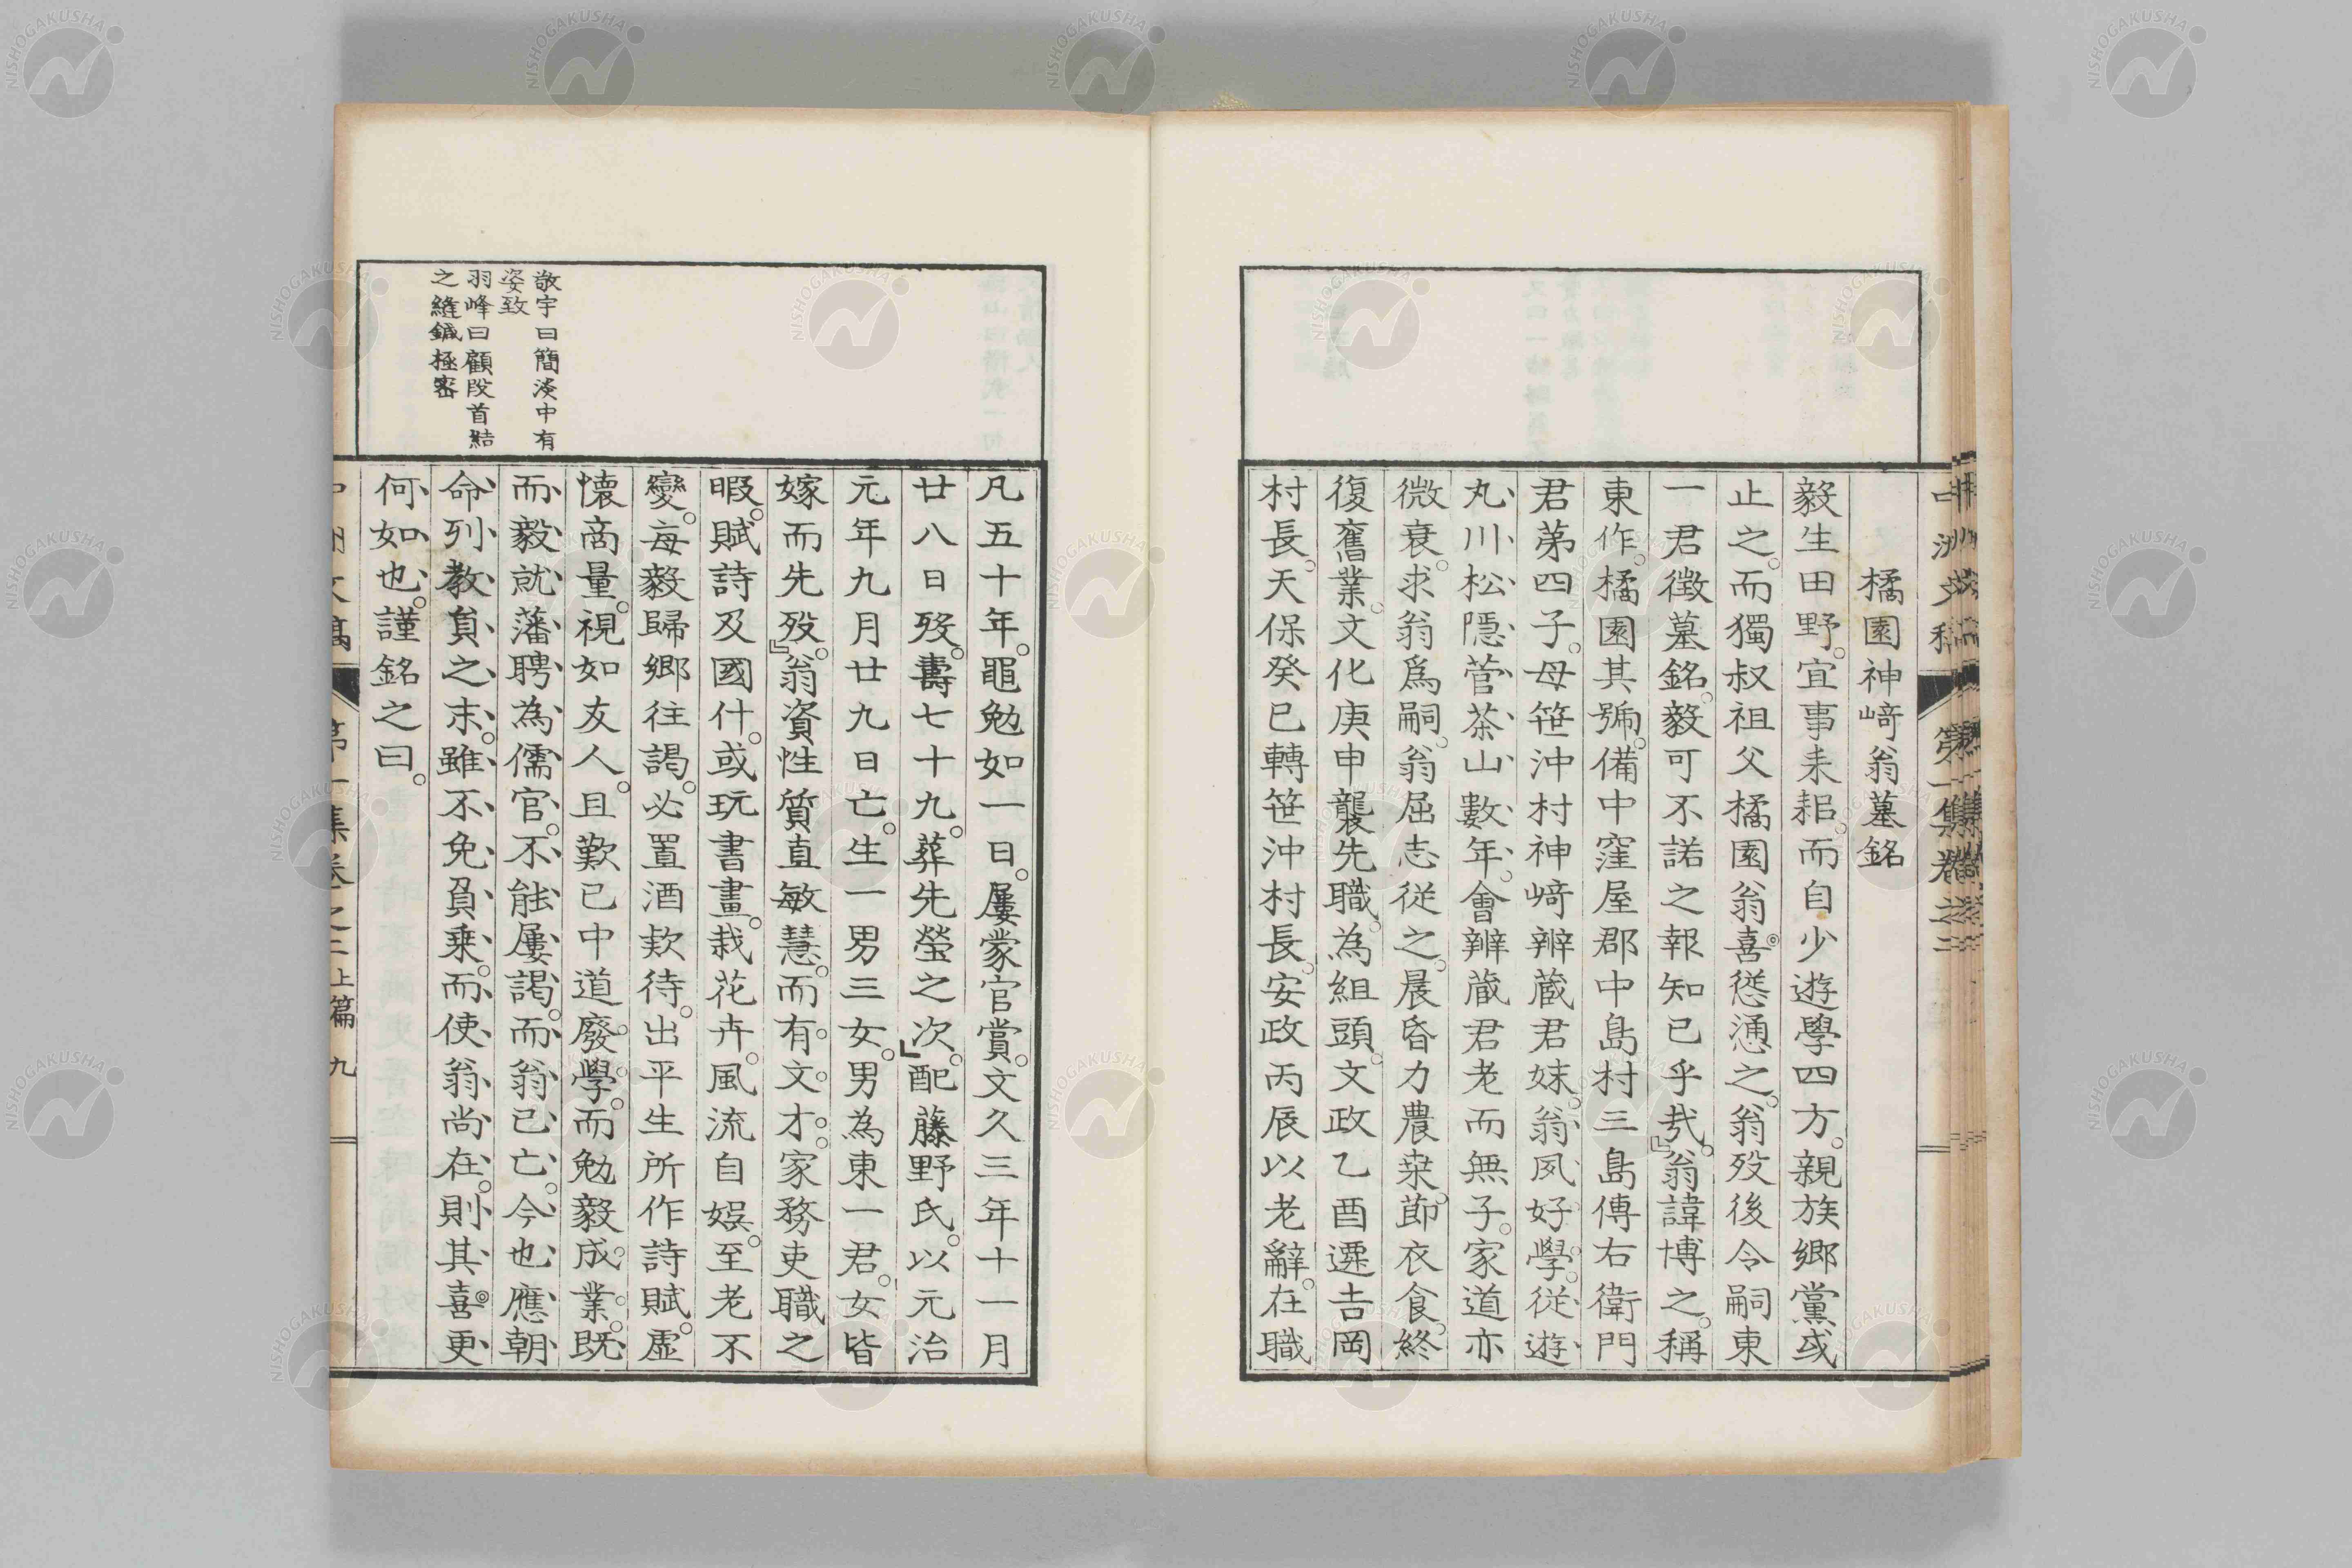 橘園神﨑翁墓銘
毅生田野。宜事耒耜。而自少遊學四方。親族鄉黨或
止之。而獨叔祖父橘園翁喜慫慂之。翁歿後令嗣東
一君徵墓銘。毅可不諾之報知已乎㢤。翁諱博之。稱
東作。橘園其號。備中窪屋郡中島村三島傳右衛門
君第四子。母笹沖村神﨑辨蔵君妹。翁夙好學。從遊
丸川松隱菅茶山數年。會辨蔵君老而無子。家道亦
微衰。求翁爲嗣。翁屈志從之。晨昏力農桒。節衣食。終
復舊業。文化庚申襲先職。為組頭。文政乙酉遷吉岡
村長。天保癸巳轉笹沖村長。安政丙辰以老辭。在職
凡五十年。黽勉如一日。屢蒙官賞。文久三年十一月
廿八日歿。壽七十九。葬先塋之次。配藤野氏。以元治
元年九月廿九日亡。生一男三女。男為東一君。女皆
嫁而先歿。翁資性質直敏慧。而有文才。家務吏職之
暇。賦詩及國什。或玩書畫。栽花卉。風流自娛。至老不
變。每毅歸鄉往謁。必置酒欵待。出平生所作詩賦。虛
懷商量。視如友人。且歎已中道廢學。而勉毅成業。既
而毅就藩聘為儒官。不能屢謁。而翁已亡。今也應朝
命列教員之末。雖不免負乗。而使翁尚在。則其喜更
何如也。謹銘之曰。
敬宇曰簡淡中有
姿致
羽峰曰顧段首結
之縫鍼極密
第一集卷之二上篇 九